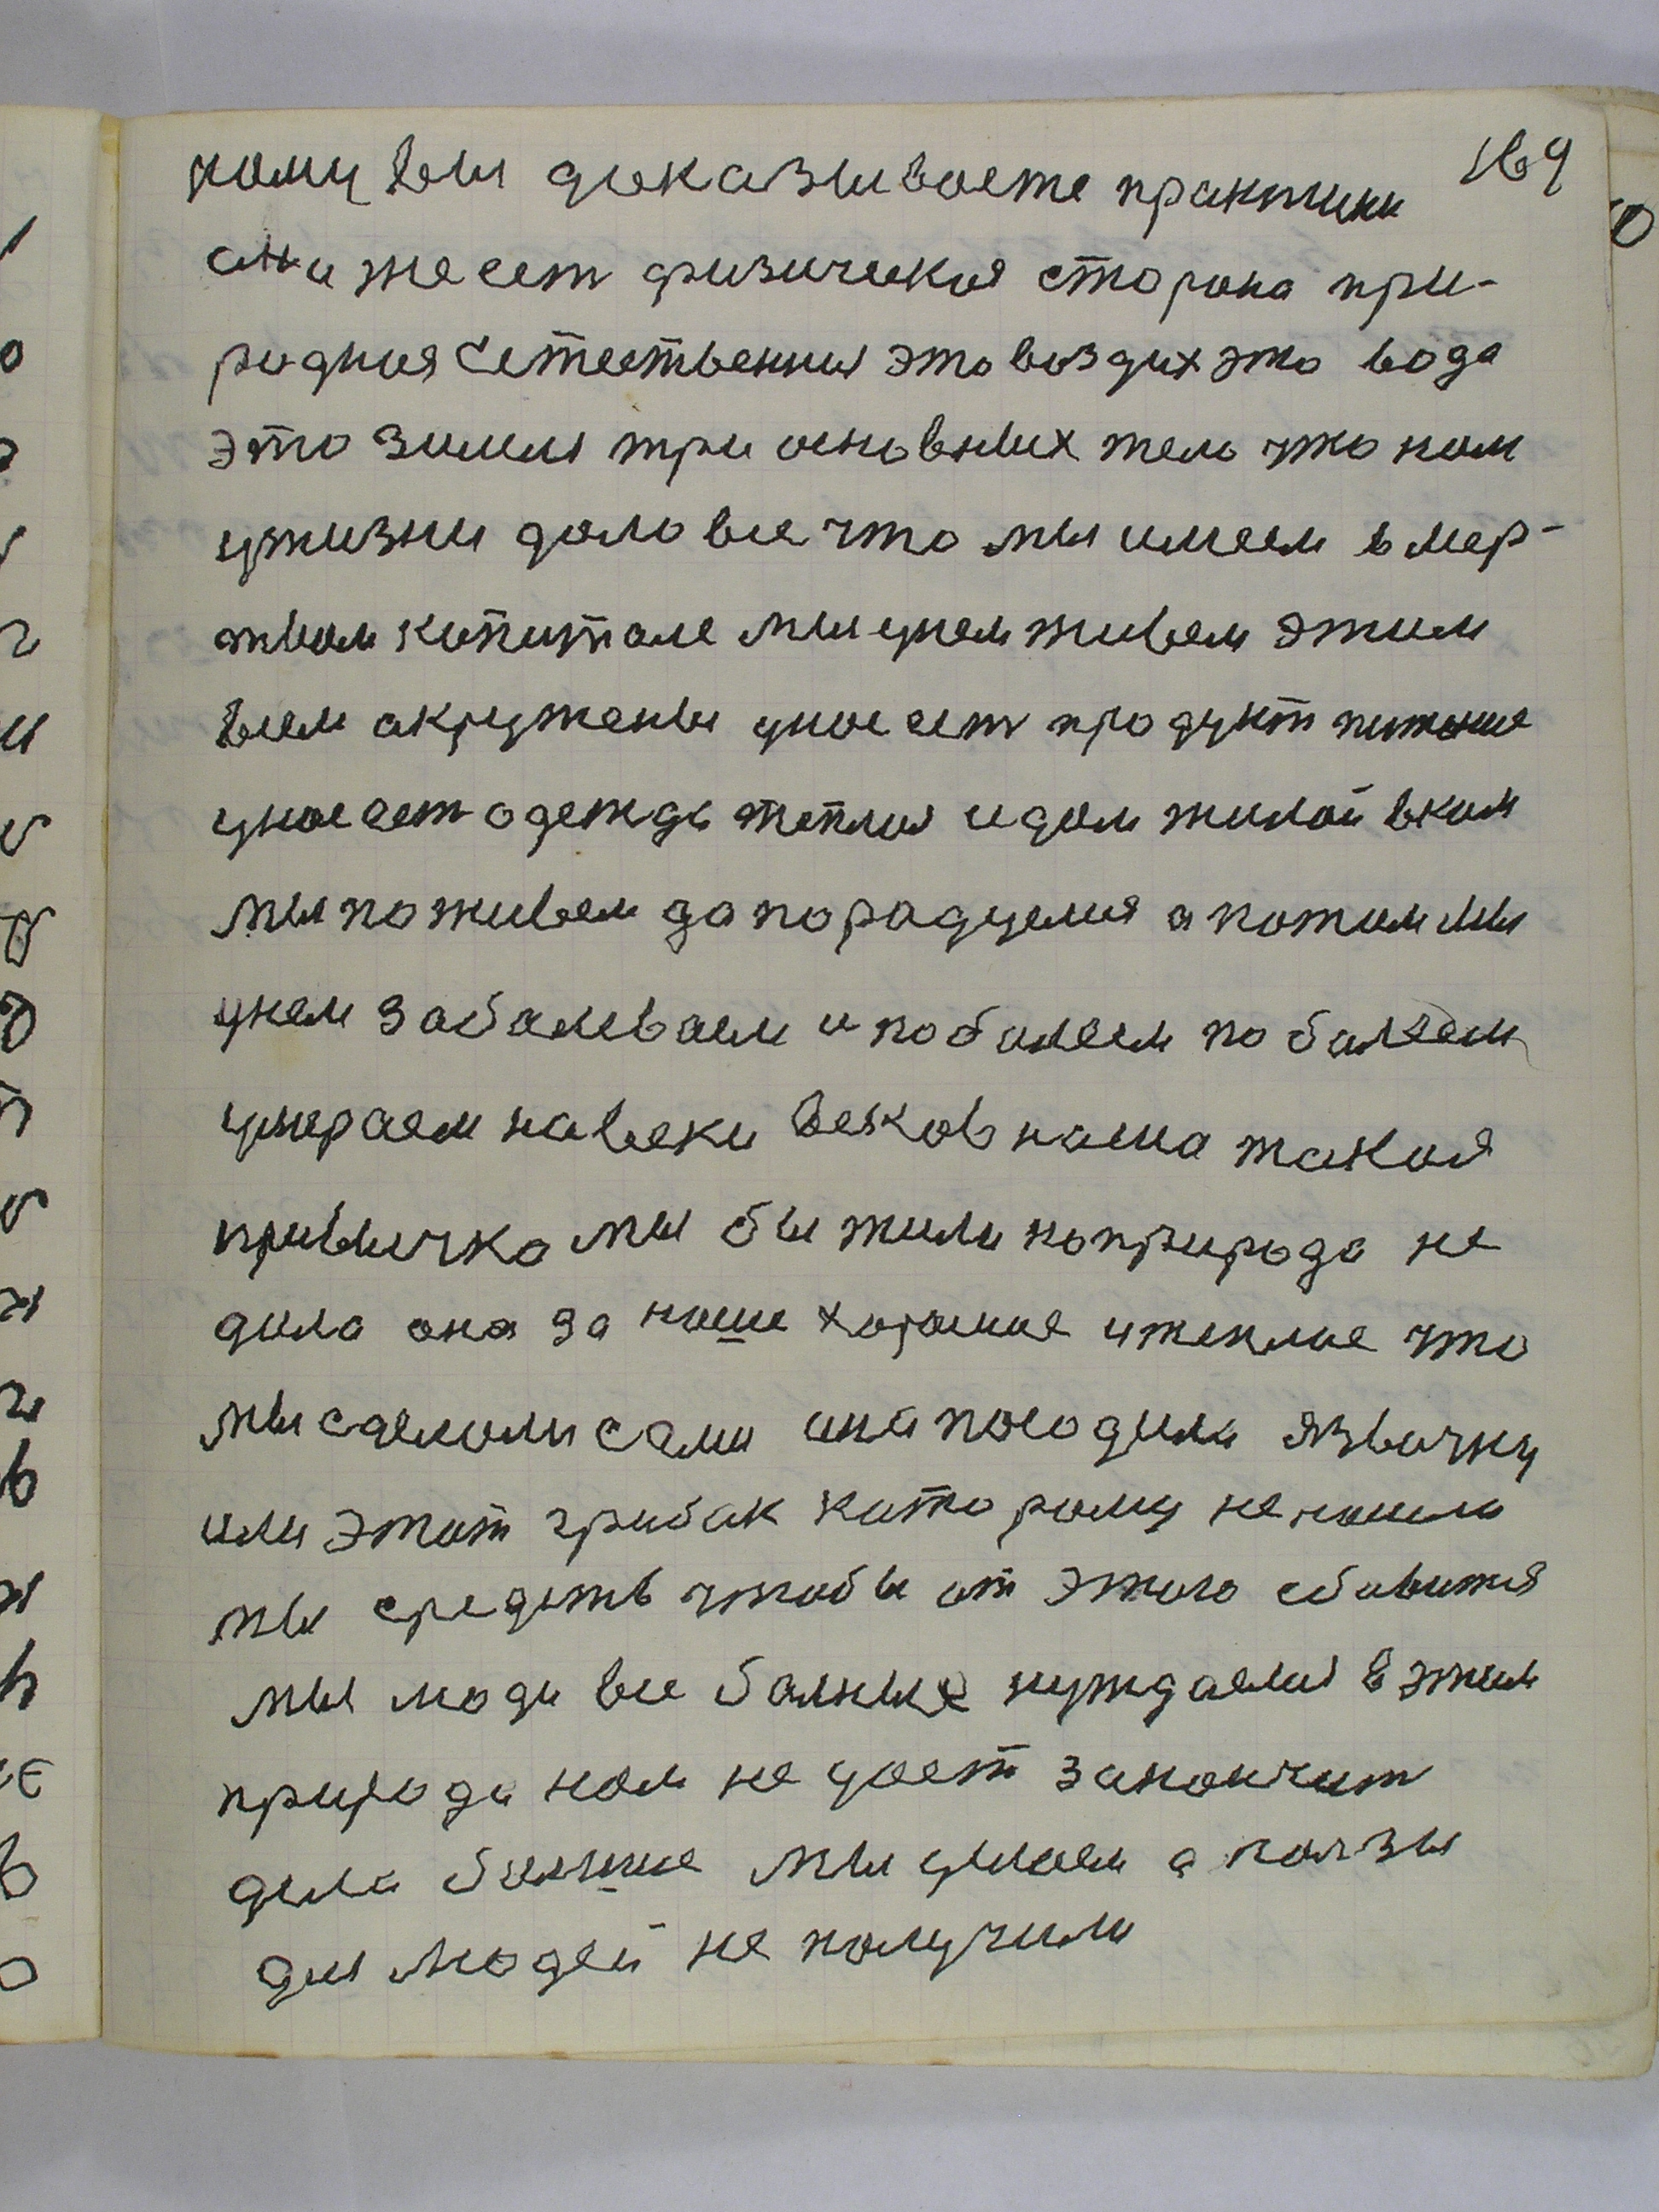 кому вы доказываете практики 169
она же ест физическая сторона при-
родная естественная это воздух это вода
это земля три основных тело что нам
ужизни дало все что мы имеем в мер-
твом капитале мы унем живем этим
всем акружены унас ест продукт питание
унас ест одежда теплая и дом жилой вкам
мы поживем да порадуемся а потом мы
унем заболеваем и поболеем поболеем
умераем навеки веков наша такая
привычка мы бы жили но природа не
дала она за наше хорошие итеплое что
мы сделоли сами она посодила язвачку
или этот грибак которому не нашли
мы средств чтобы от этого сбавится
мы люди все болные нуждаемся в этим
природа нам не дает закончит
дела болшие мы думаем а ползы
для людей не получим